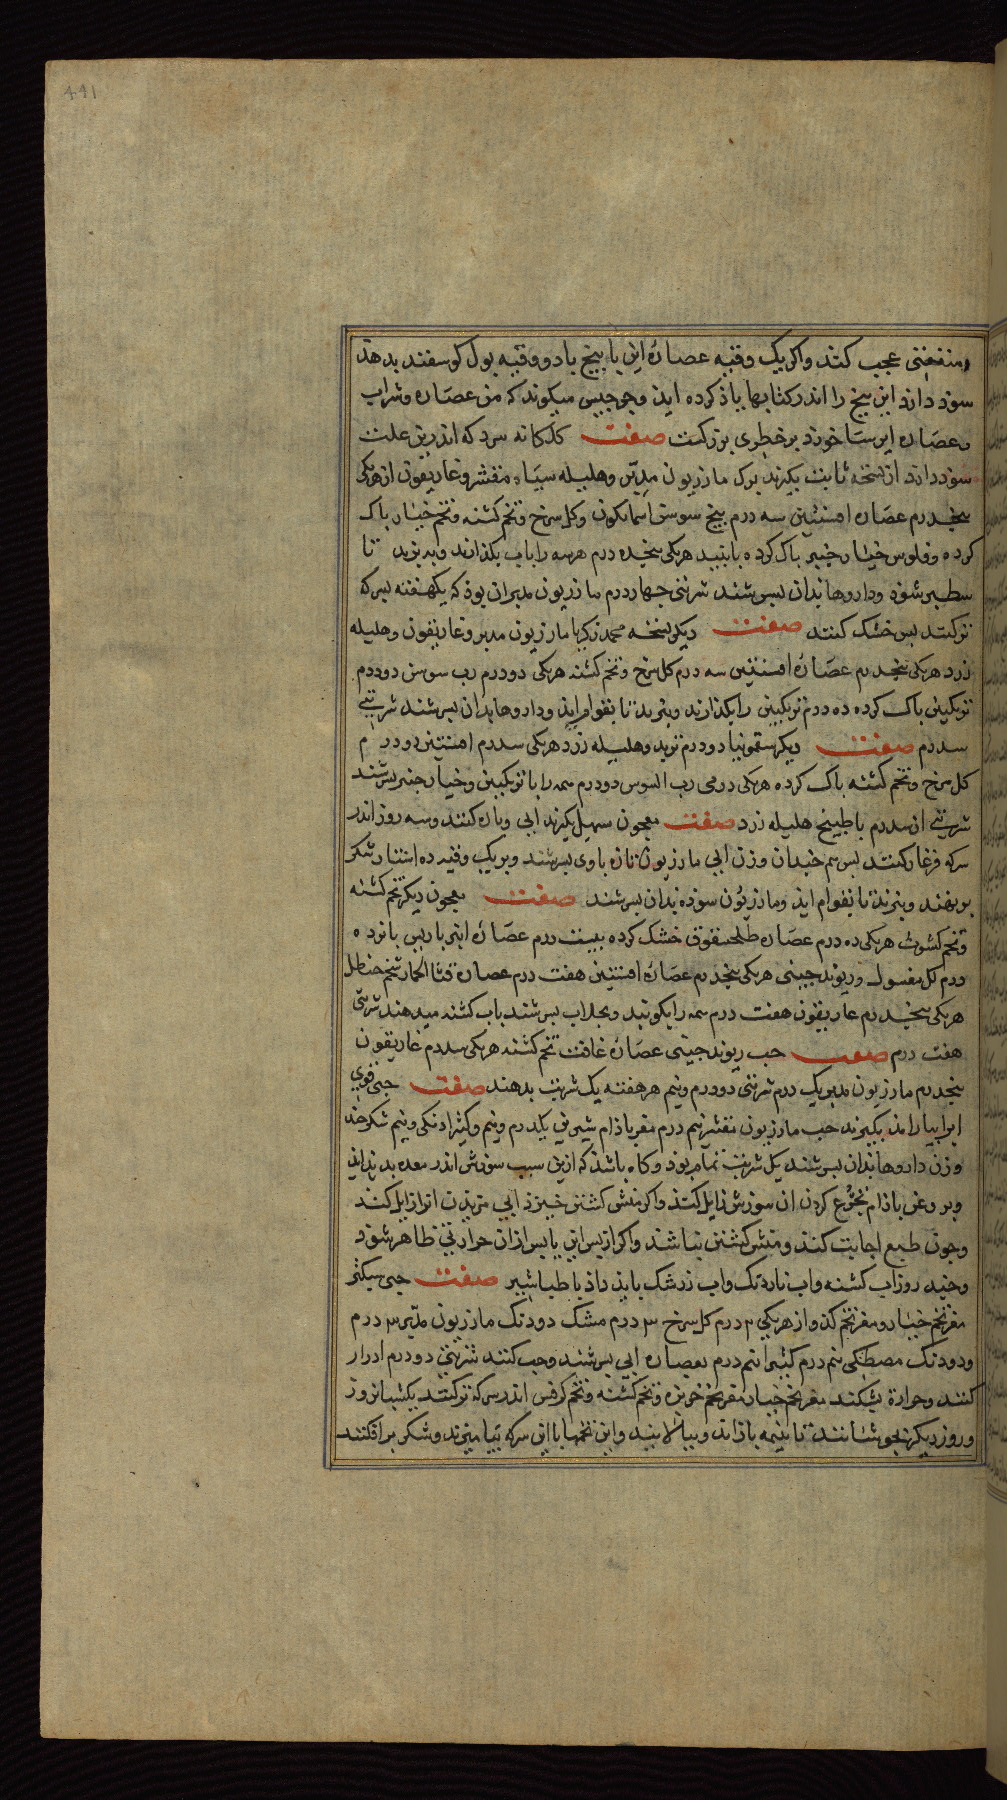 ۴۴۱
منفعتی عجب کند واکر یک وقیه عصارهٔ این با پنج یا دو وقیه بول کوسفند بدهند
سوذ دارذ این بیخ را اندر کتابها یاذ کرده ایذ وجرجیس میکوند که من عصاره وشراب
وعصاره ایرسا خورد بر خطری بزرکست صفت کلکانه سرد که اندرین علت
سوذ دارذ از نسخه ثابت بکیرند برک مازریون مدبّر وهلیله سیاه مقشر وغاریقون از هر یکی
پنجدرم عصاره افسنتین سه درم بیخ سوسن اسمانکون وکل سرخ وتخم کشنه وتخم خیار باک
کرده وفلوس خیار جنبر باک کرده بانبید هریکی پنجده درم هرسه را باب بکذارند وبه بزند تا
سطبر شوذ وداروها بذان بسرشند شربتی جهار درم مازریون مدبران بوذ که یکهفته بسرکه
ترکنند بس خشک کنند صفت دیکر نسخه محمد زکریا مازریون مدبر وغاریقون وهلیله
زرد هریکی پنجدرم عصارهٔ افسنتین سه درم کل سرخ وتخم کشنه هریکی دودرم رب سوس دودرم
ترنکبین باک کرده ده درم ترنکبین را بکذارند وبنرند تا بقوام ایذ وداروها بذان بسرشند شربتی
سدرم صفت دیکر سقمونیا دودرم تربد وهلیله زرد هریکی سدرم افسنتین دودرم
کل سرخ وتخم کشنه باک کرده هریکی درمی رب السوس دودرم سمه را با ترنکبین وخیار جنبر بسرشند
شربتی از سدرم با طبیخ هلیله زرد صفت معجون سهیل بکیرند ابی وباره کنند وسه روز اندر
سرکه فرغار کنند بس هم جندان وزن ابی مازریون تازه باوی بسرشند وبریک وقیه ده استار شکر
برنهند وبنرند تا بقوام ایذ ومازریون سوذه بذان بسرشند صفت معجون دیکر تخم کشنه
وتخم کشوث هریکی ده درم عصاره خشک کرده بیست درم عصارهٔ
درم لک مغسول وریوند جینی هریکی پنجدرم عصارهٔ افسنتین هفت درم عصاره قثا الحمار شخم حنظل
هریکی پنجدرم غاریقون هفت درم سمه را بکوبند وبجلاب بسرشند باب کشنه میدهند شربتی
هفت درم صفت حب ریوند جینی عصارهٔ غافت تخم کشنه هریکی سدرم غاریقون
پنجدرم مازریون مدبر یک درم شربتی دودرم ونیم هر هفته یک شربت بدهند صفت حبی قوی
بکیرند حب مازریون مقشر نیم درم مغز باذام شیرین یکدرم ونیم وکثیرا دنکی ونیم شکر جند
وزن داروها بذان بسرشند یک شربت تمام بوذ وکاه باشذ که ازین سبب سوزش اندر معده بدیذ ایذ
وبروغن باذام تجرع کردن ان سوزش زایل کند واکر منش کشتن خیزذ ابی انرا زایل کند
وجون طبع اجابت کند ومنش کشتن نباشد واکر ازبس این یا بیس ازان حرارتی ظاهر شوذ
وجند روز اب کشنه واب نارترک واب زرشک بایذ داذ با طباشیر صفت حبی سیکثر
مغز تخم خیار ومغز تخم کدو از هریکی ۳ درم کل سرخ ۳ درم مشک دودنک مازریون مدبّر ۳ درم
ودودنک مصطکی نیم درم کثیرا نیم درم بعصاره ابی بسرشند وحب کنند شربتی دودرم ادرار
کنند وحرارة بشکند مغز تخم خیار مغز تخم خربزه وتخم کشنه وتخم کرفس اندر سرکه ترکنند یکشبانروز
وروز دیکر بجوشانند تا بنیمه بازاید وببالانند واین تخمها با این سرکه بیامیزند وشکر برافکنند